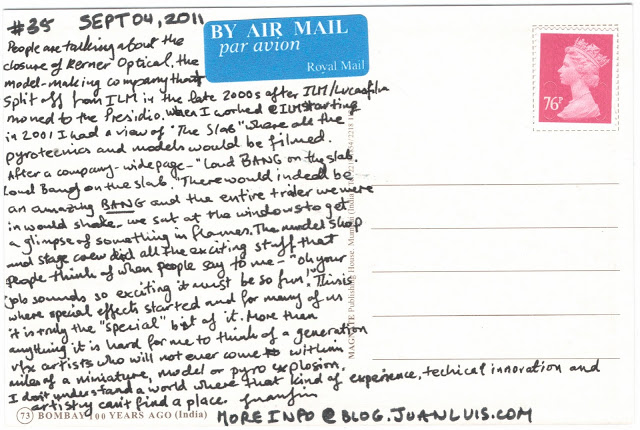 #35 SEPT 04, 2011
BY AIR MAIL
par avion
Royal Mail
76P
People are talking about the
closure of Kerner Optical, the
model-making company that
split off from ILM in the late 2000s after ILM/Lucasfilm
moved to the Presidio. When I worked @ILM starting
in 2001 I had a view of "The Slab" where all the
pyrotecnics and models would be filmed.
After a company-wide page - "Loud BANG on the slab.
Loud Bang on the slab." There would indeed be
an amazing BANG and the entire trailer we were
in would shake - we sat at the windows to get
a glimpse of something in flames. The model shop
and stage crew did all the exciting stuff that
people think of when people say to me - "oh your
job sounds so exciting it must be so fun!" This is
where special effects started and for many of us
it is truly the "special" bit of it. More than
anything it is hard for me to think of a generation
vfx artists who will not ever come to within
miles of a miniature, model or pyro explosion.
I don't understand a world where that kind of experience, techical innovation and
artistry can't find a place.
73 BOMBAY 100 YEARS AGO (India)
MORE INFO @ BLOG.JUANLUIS.COM